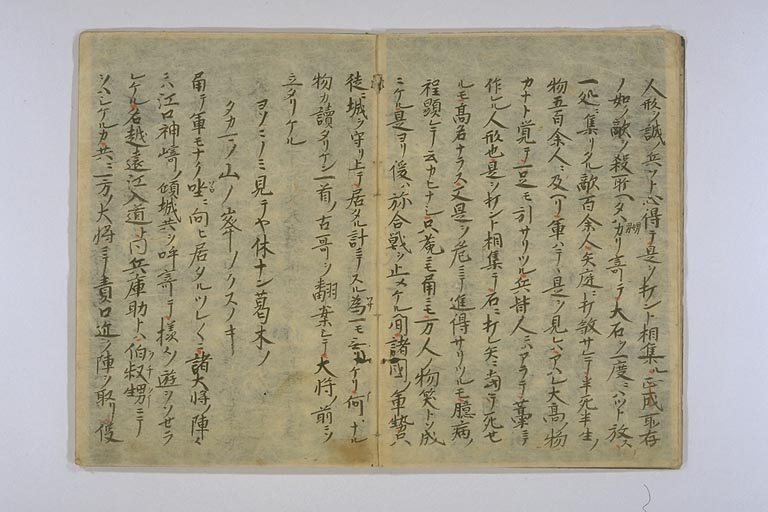 人形ヲ誠ノ兵ソト心得テ是ヲ打ント相集ル正成所存
ノ如ク敵ヲ殺所一タハカリ寄テ大石ヲ一度ニハット放ス
一処ニ集リタル敵百余人矢庭ニ打殺サレテ半死半生ノ
物五百余人ニ及リ軍ハテヽ是ヲ見レハアハレ大髙ノ物
カナト覚テ一足モ引サリツル兵皆人ニハアラテ藁ニテ
作レル人形也是ヲ打ント相集テ石ニ打レ矢ニ当テ死せ
ルモ髙名ナラス又是ヲ危ミテ進得サリツルモ臆病ノ
程顕レテ云カヒナシ只菟ニモ角ニモ万人ノ物笑トソ成
ニケル是ヨリ後ハ弥合戦ヲ止メケル間諸國ノ軍勢ハ
徒ニ城ヲ守リ上テ居タル計ニテスル為一モ无リケリ何ナル
物カ讀タリケン一首ノ古哥ヲ翻案シテ大将ノ前ニソ
立タリケル
ヨソニノミ見テヤ休ナン葛木ノ
タカマノ山ノ峯ノクスノキ
角テ軍モナクテ唑ニ向ヒ居タルツレ〳〵ニ諸大将ノ陣々
ニハ江口神崎ノ傾城共ヲ呼寄テ様々ノ遊ヲソせラ
レケル名越遠江入道ト同兵庫助トハ伯叔甥ニテ
ヲハシケルカ共ニ一方ノ大将ニテ責口近ク陣ヲ取リ役